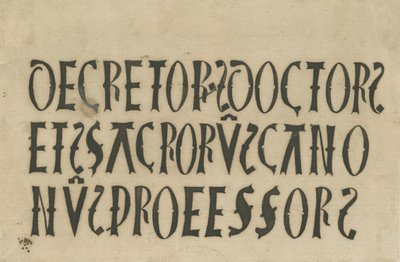 DECRETORS DOCTORS
ET S SACRORV̂ S CANO
NV̂ S PROEESSORS